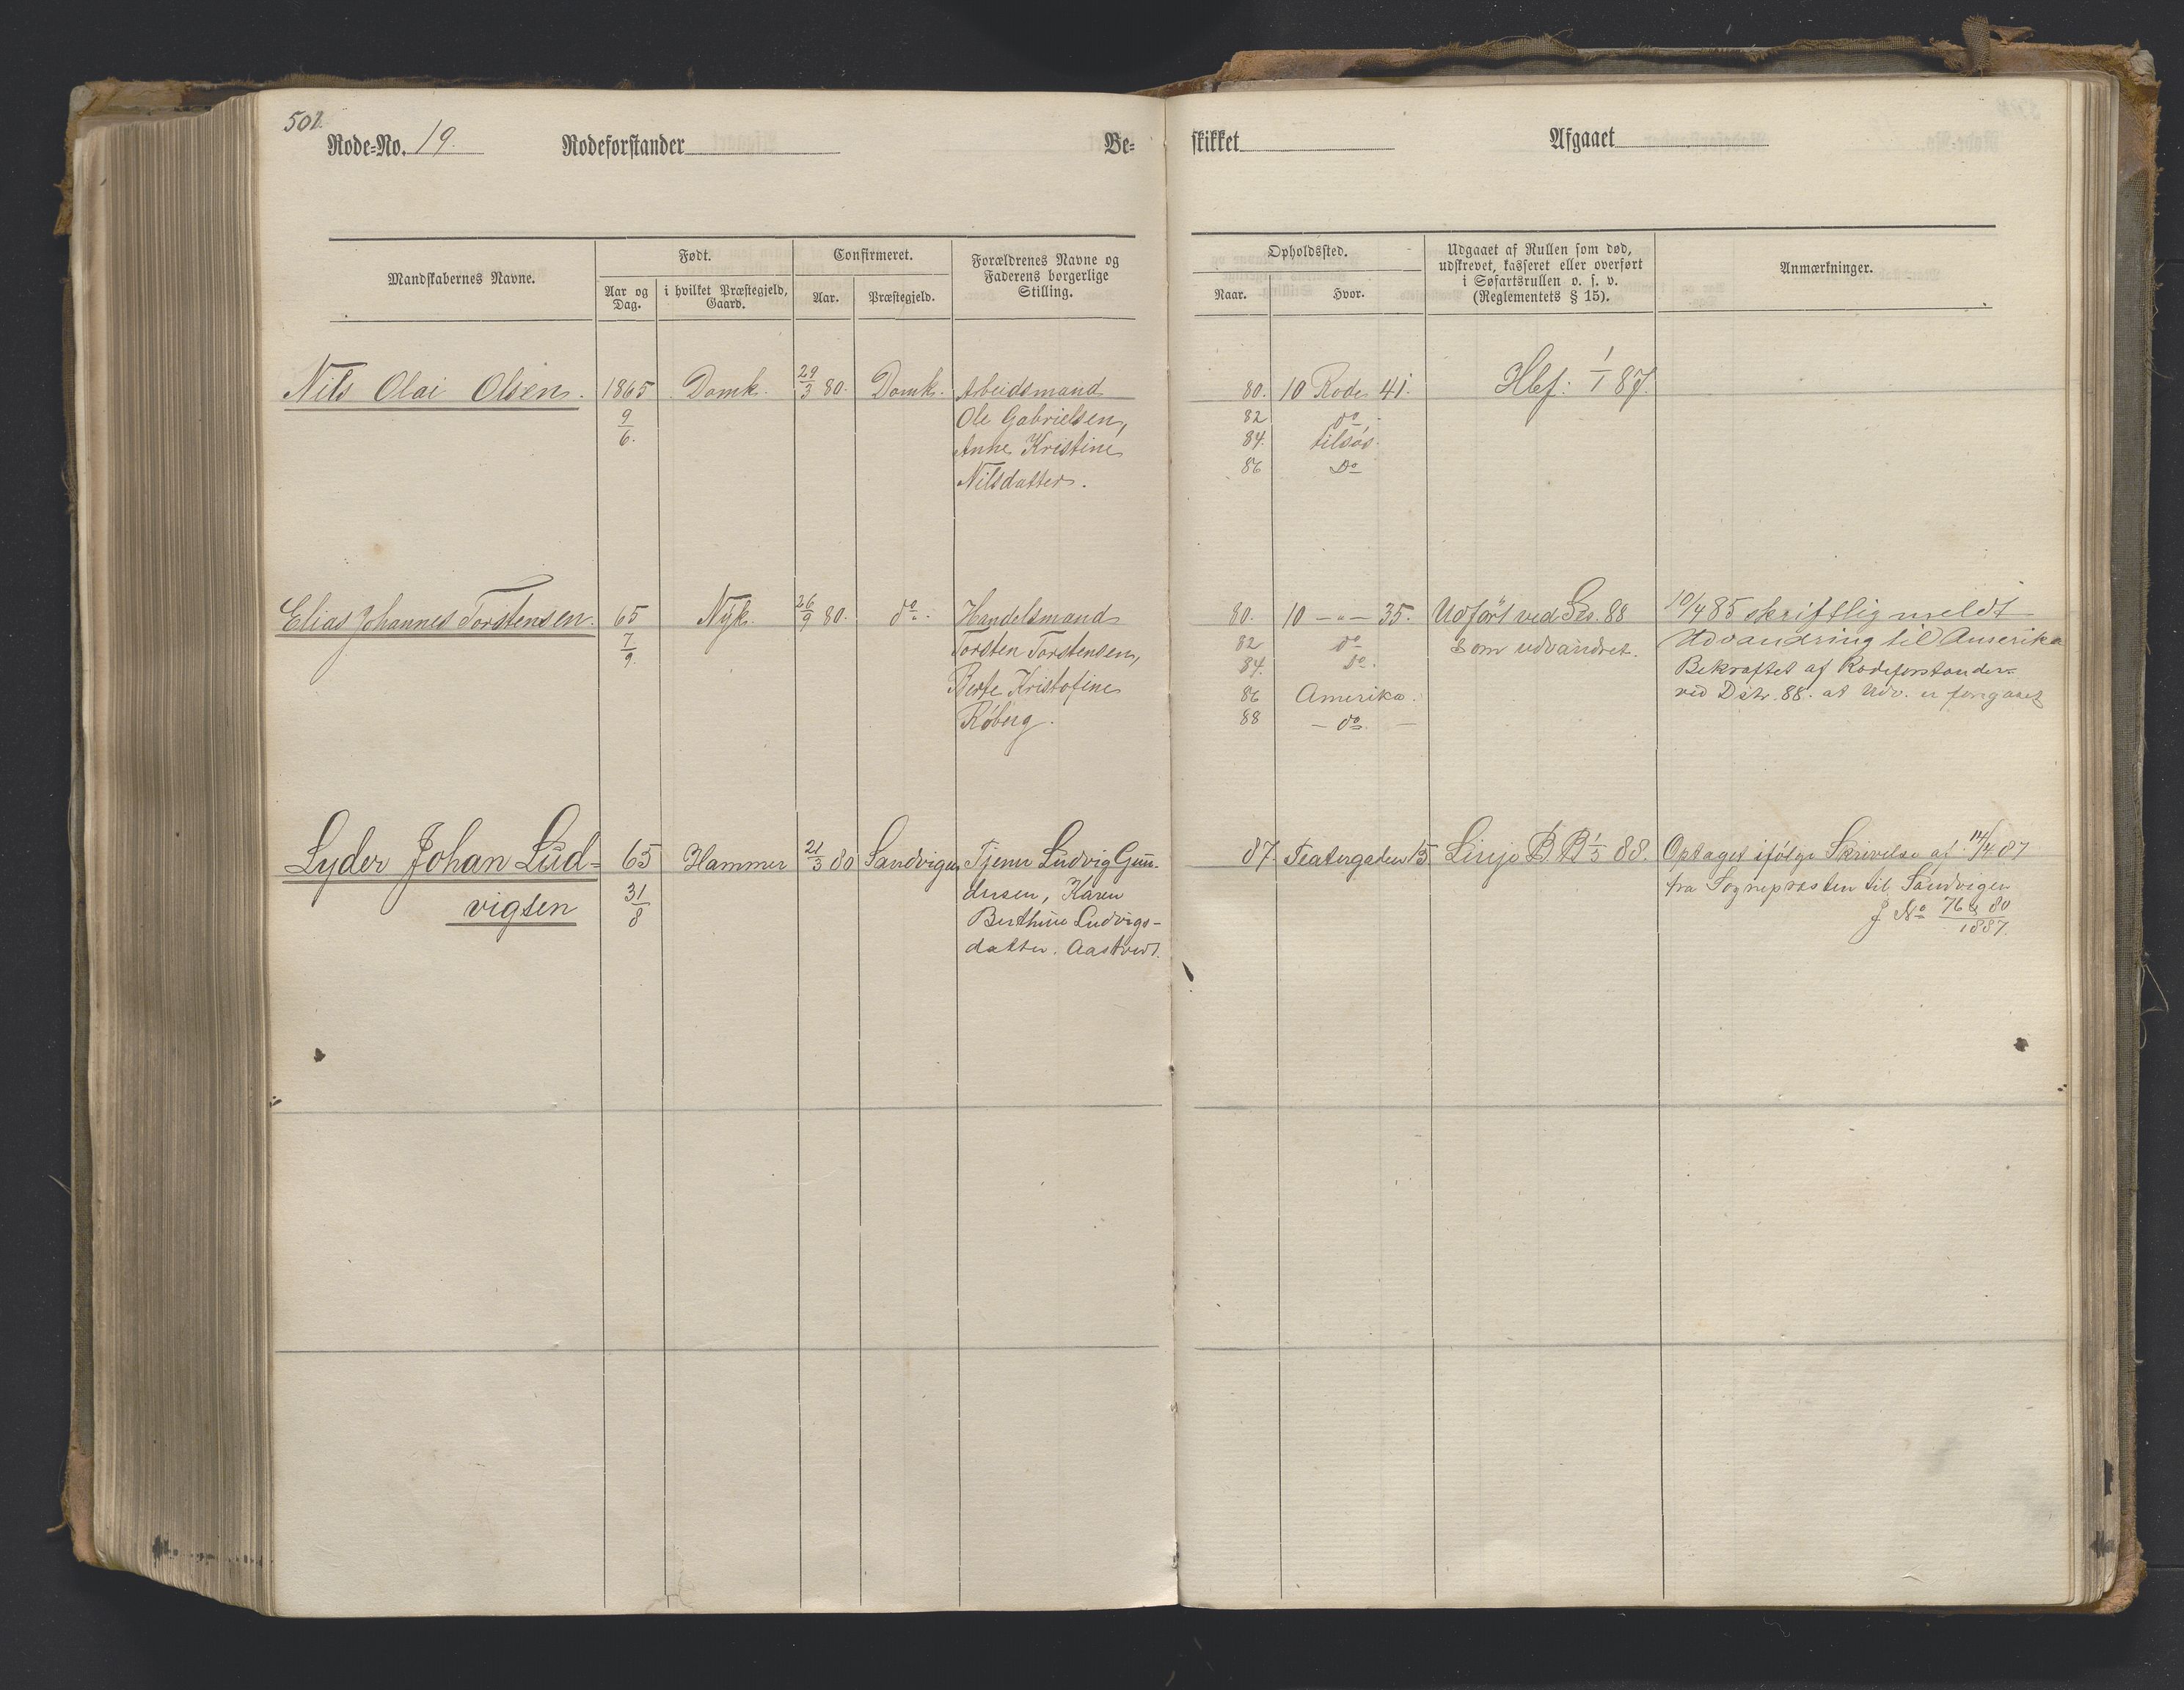 502.
Rode=No. 19. Rodeforstander Be=
skikket Afgaaet
Mandskabernes Navne.
Født.
Aar og Dag.
i hvilket Præstegjeld, Gaard.
Confirmeret.
Aar.
Præstegjeld.
Forældrenes Navne og
Faderens borgerlige
Stilling.
Opholdssted.
Naar.
Hvor.
Udgaaet af Rullen som død,
udskrevet, kasseret eller overført
i Søfartsrullen o. s. v.
(Reglementets § 15).
Anmærkninger.
Nils Olai Olsen. 1865 Domk. 29/3 80. Domk. Arbeidsmand 80. 10 Rode 41. Hlef: 1/1 87.
9/6. Ole Gabrielsen, 82 do
Anne Kristine 84. tilsøs.
Nilsdatter. 86 Do
Elias Johannes Torstensen. 65 Nyk. 26/9 80. do. Handelsmand 80. 10 -"- 35. Udført ved Ses. 88 10/4 85 skriftlig meldt
7/9. Torsten Torstensen, 82 do som udvandret. Udvandring til Amerika
Berte Kristofine 84. Do. Bekræftet af Rodeforstander
Røberg. 86 Amerika. ved Distr. 88. at Udv. er foregaaet
88 - do. -
Lyder Johan Lud= 65 Hammer 21/3 80 Sandvigen Tjener Ludvig Gun- 87. Teatergaden 15 Linje B. B 1/5 88. Optaget ifølge Skrivelse af 14/4 87
vigsen 31/8 dersen, Karen fra Sognepræsten til Sandvigen
Berthine Ludvigs- J No 76 & 80/1887.
datter. Aastvedt.